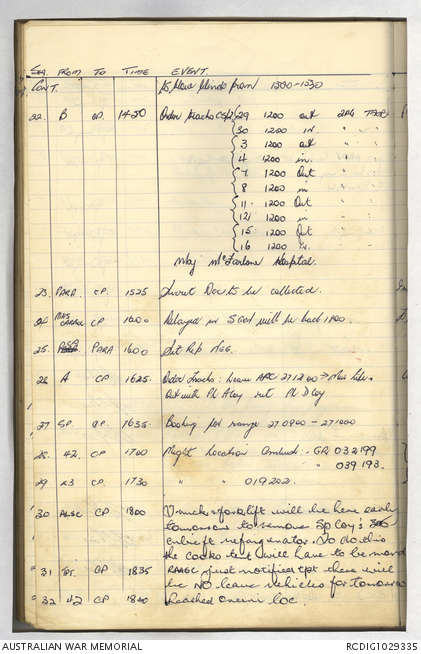 SER. FROM TO TIME EVENT.
CONT. to blow blinds from 1200-1230
22. B CP. 1420 Order tracks 29 1200 out 2RG
30 1200 IN. " "
3 1200 out " "
4 1200 in. " "
7 1200 Out " "
8 1200 in " "
11 1200 Out " "
12 1200 in " "
15 1200 Out " "
16 1200 in. " "
Maj McFarlane Hospital.
23. PARA CP. 1525 Secret Docs to be collected.
24 CP. 1600 Delayed in will be back
25. PARA 1600 Sit Rep Neg.
26 A CP 1625. Order Tracks: Leave APC 271200
out with Pl A Coy ret Pl D Coy
27 SP. CP 1635. Booking for range 270900 - 271000
28. 42. CP 1700 Night Location Ambush - GR 032199
" 039193.
29 43 CP 1730 " " 019202.
30 CP 1800 truck & forklift will be here early
tomorrow to remove Sp Coy's 
refrigerator. To do this
the cooks tent will have to be moved
31 CP 1835 RAASC just notified that there will
be NO leave vehicles for tomorrow
32 42 CP 1840 Reached loc.
AUSTRALIAN WAR MEMORIAL
RCDIG1029335